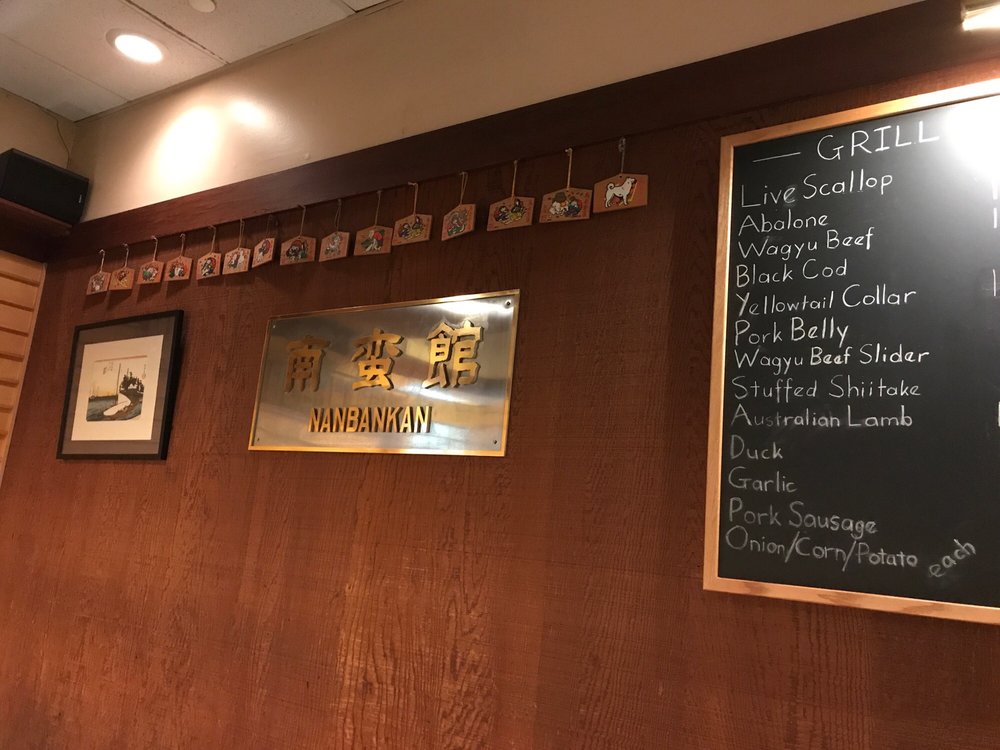 南蛮館
NANBANKAN
GRILL
Live Scallop
Abalone
Wagyu Beef
Black Cod
Yellowtail Collar
Pork Belly
Wagyu Beef Slider
Stuffed Shiitake
Australian Lamb
Duck
Garlic
Pork Sausage
Onion/Corn/Potato each